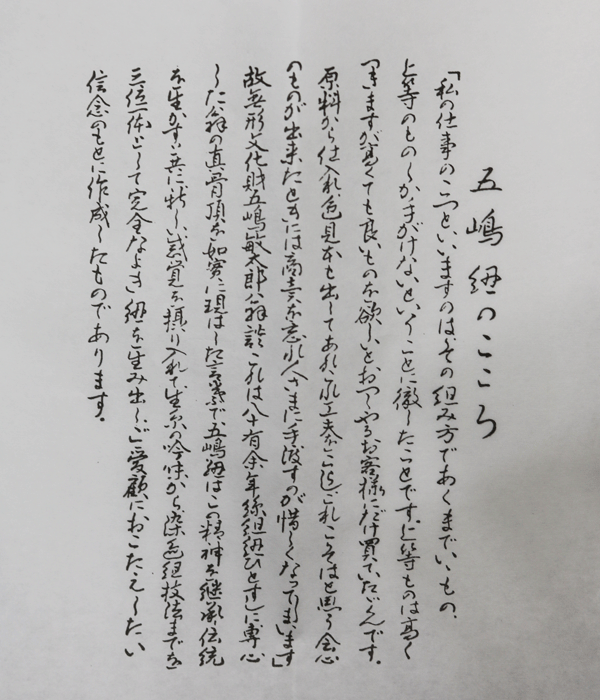 五嶋紐のこころ
「私の仕事のこつといいますのは、その組み方であくまでいいもの、
上等のものしか手がけないということに徹したことです。上等ものは高く
つきますが高くても良いものを欲しいとおっしゃるお客様にだけ買ていただくんです。
原料から仕入れ色見本も出してあれこれ工夫をこらしこれこそはと思う会心
のものが出来たときには商売を忘れ人さまに手渡すのが惜しくなってしまいます」
故無形文化財五嶋敏太郎翁談、これは八十有余年絲組紐ひとすじに専心
した翁の真骨頂を如実に現はした言葉で五嶋紐はこの精神を継承伝統
を生かす共に新しい感覚を摂り入れて生糸の吟味から染色組技法までを
三位一体として完全なよき紐を生み出しご愛顧におこたえしたい
信念のもとに作成したものであります。